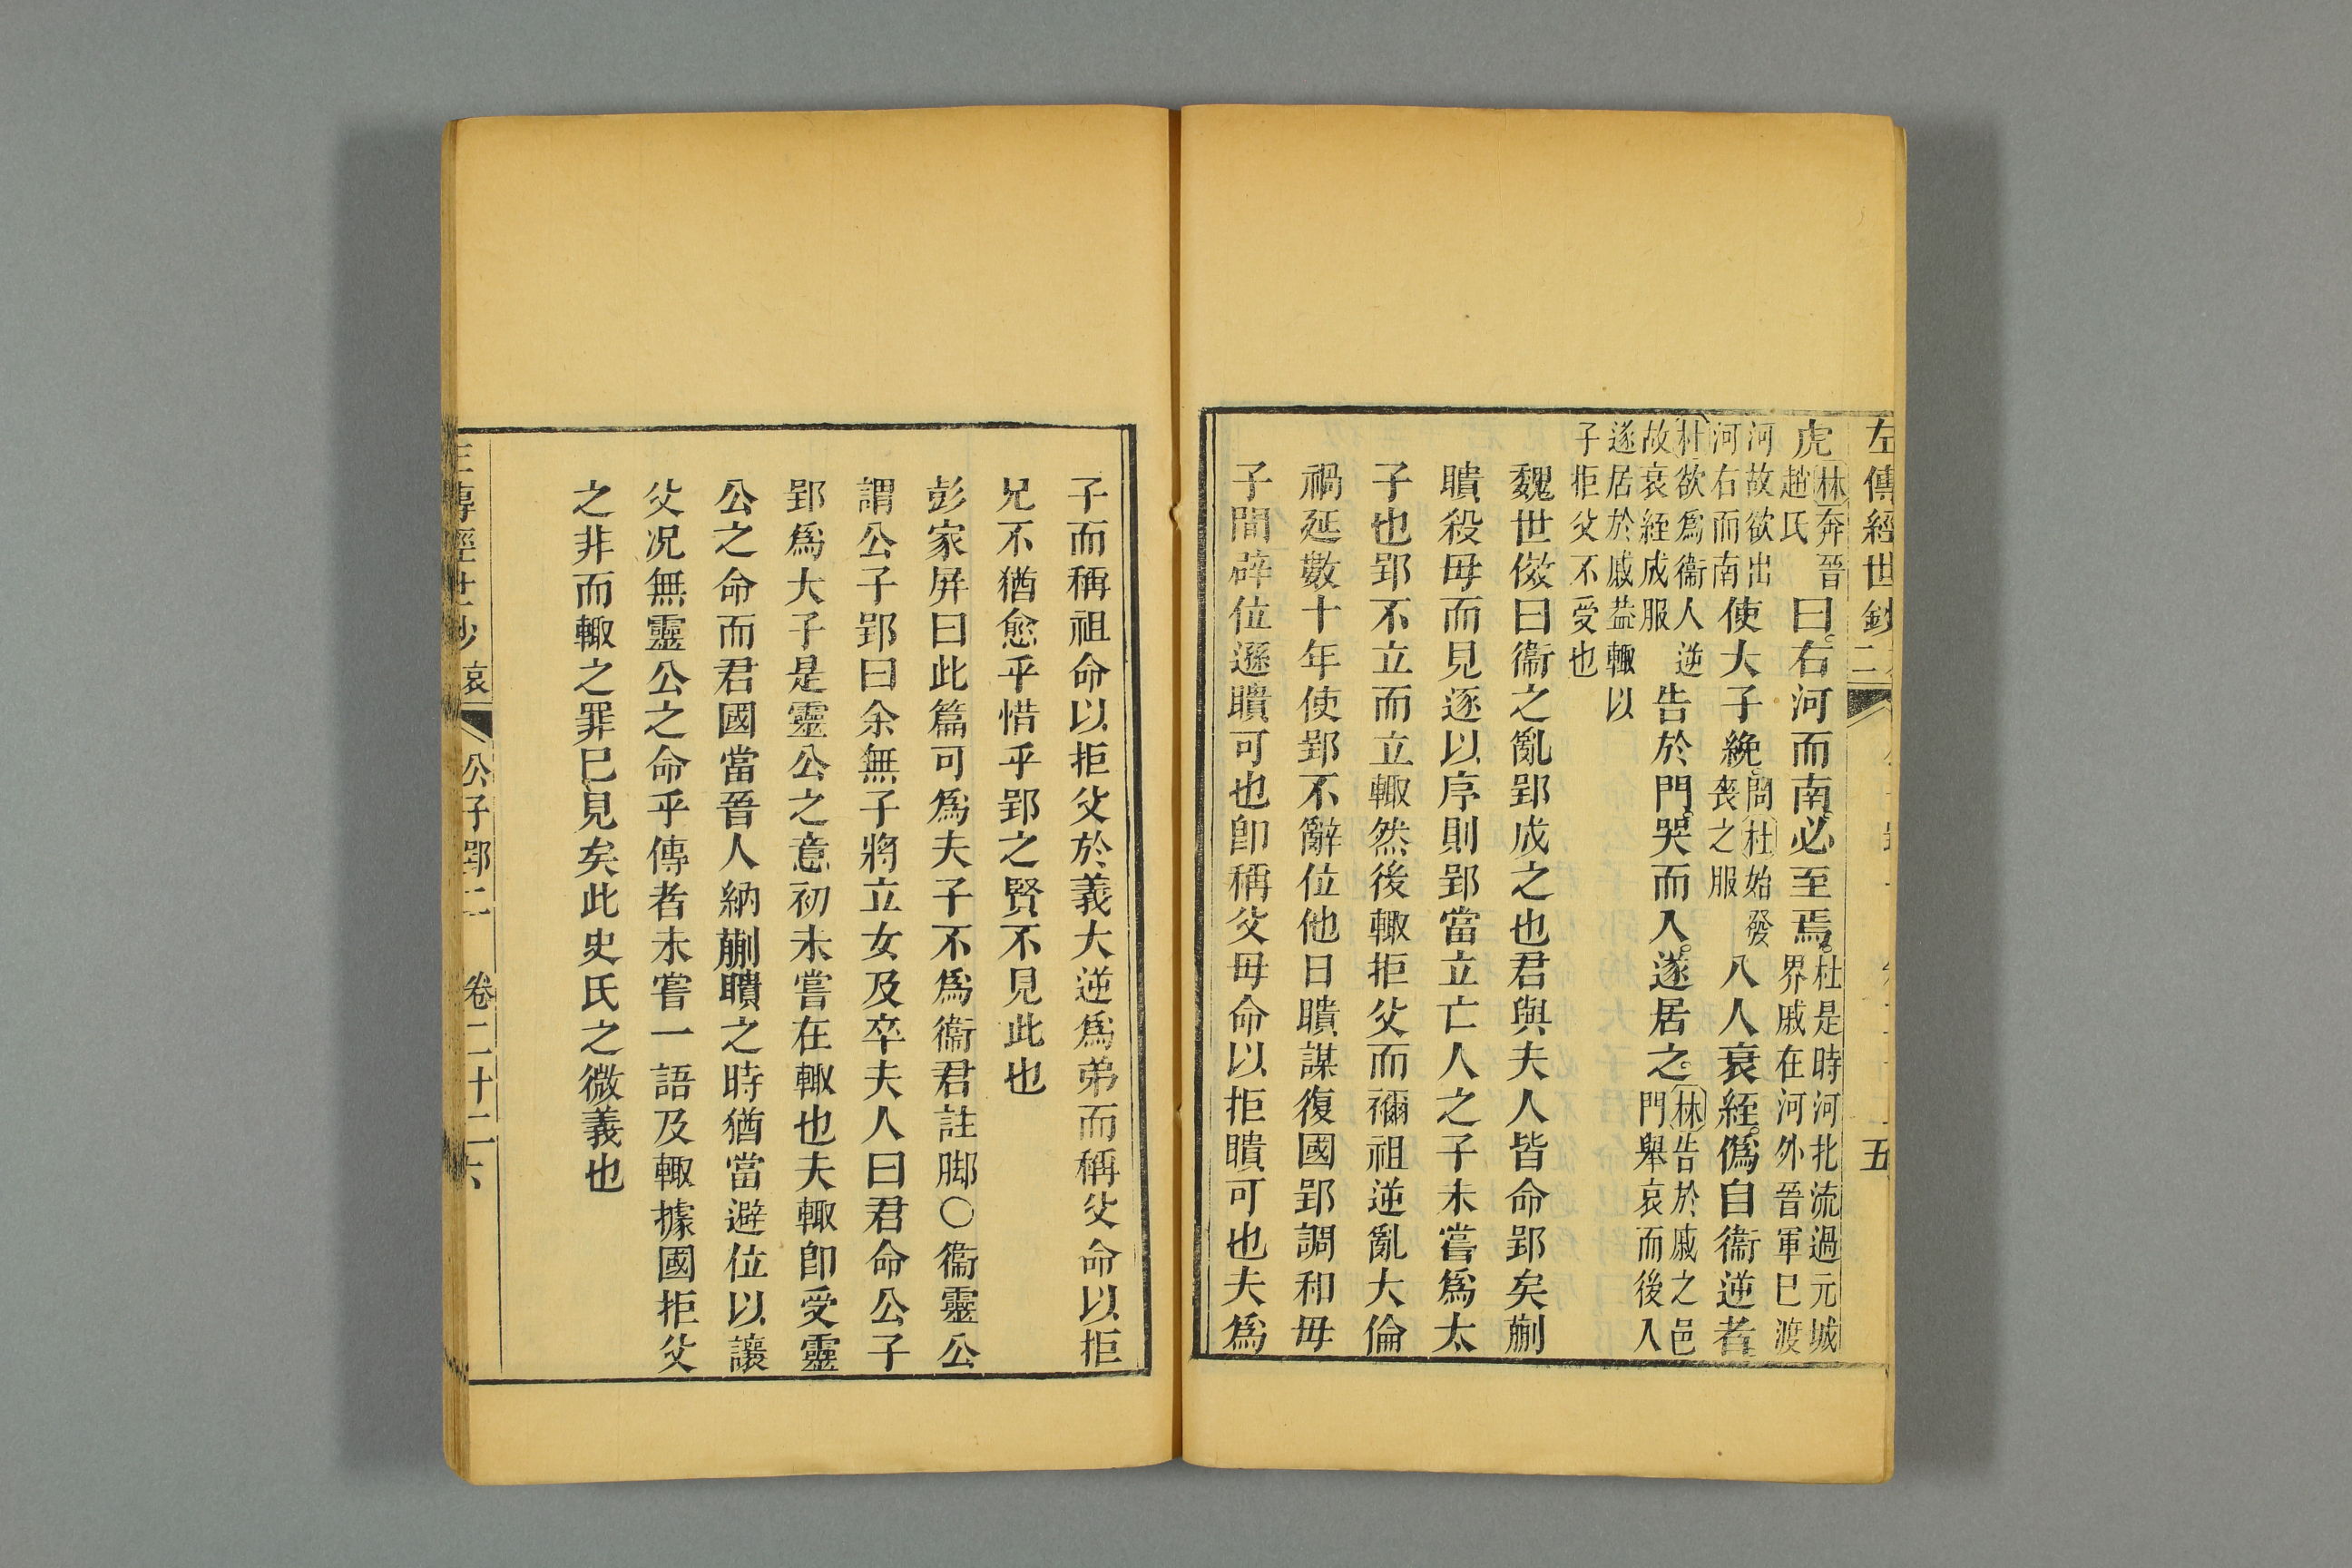 左傳經世鈔 二 五
虎林奔晉趙氏曰右河而南必至焉杜是時河北流過元城界戚在河外晉軍已渡
河故欲出河右而南使大子絻問杜始發喪之服八人衰絰僞自衞逆者
杜欲爲衞人逆故衰絰成服告於門哭而入遂居之林告於戚之邑門舉哀而後入
遂居於戚葢輒以子拒父不受也
魏世傚曰衞之亂郢成之也君與夫人皆命郢矣蒯
聵殺毋而見逐以序則郢當立亡人之子未嘗爲太
子也郢不立而立輒然後輒拒父而禰祖逆亂大倫
禍延數十年使郢不辭位他日聵謀復國郢調和毋
子間辟位遜聵可也卽稱父毋命以拒聵可也夫爲
子而稱祖命以拒父於義大逆爲弟而稱父命以拒
兄不猶愈乎惜乎郢之賢不見此也
彭家屏曰此篇可爲夫子不爲衞君註脚○衞靈公
謂公子郢曰余無子將立女及卒夫人曰君命公子
郢爲大子是靈公之意初未嘗在輒也夫輒卽受靈
公之命而君國當晉人納蒯聵之時猶當避位以讓
父况無靈公之命乎傳者未嘗一語及輒據國拒父
之非而輒之罪已見矣此史氏之微義也
左傳經世鈔 哀 公子郢二 卷二十二 六